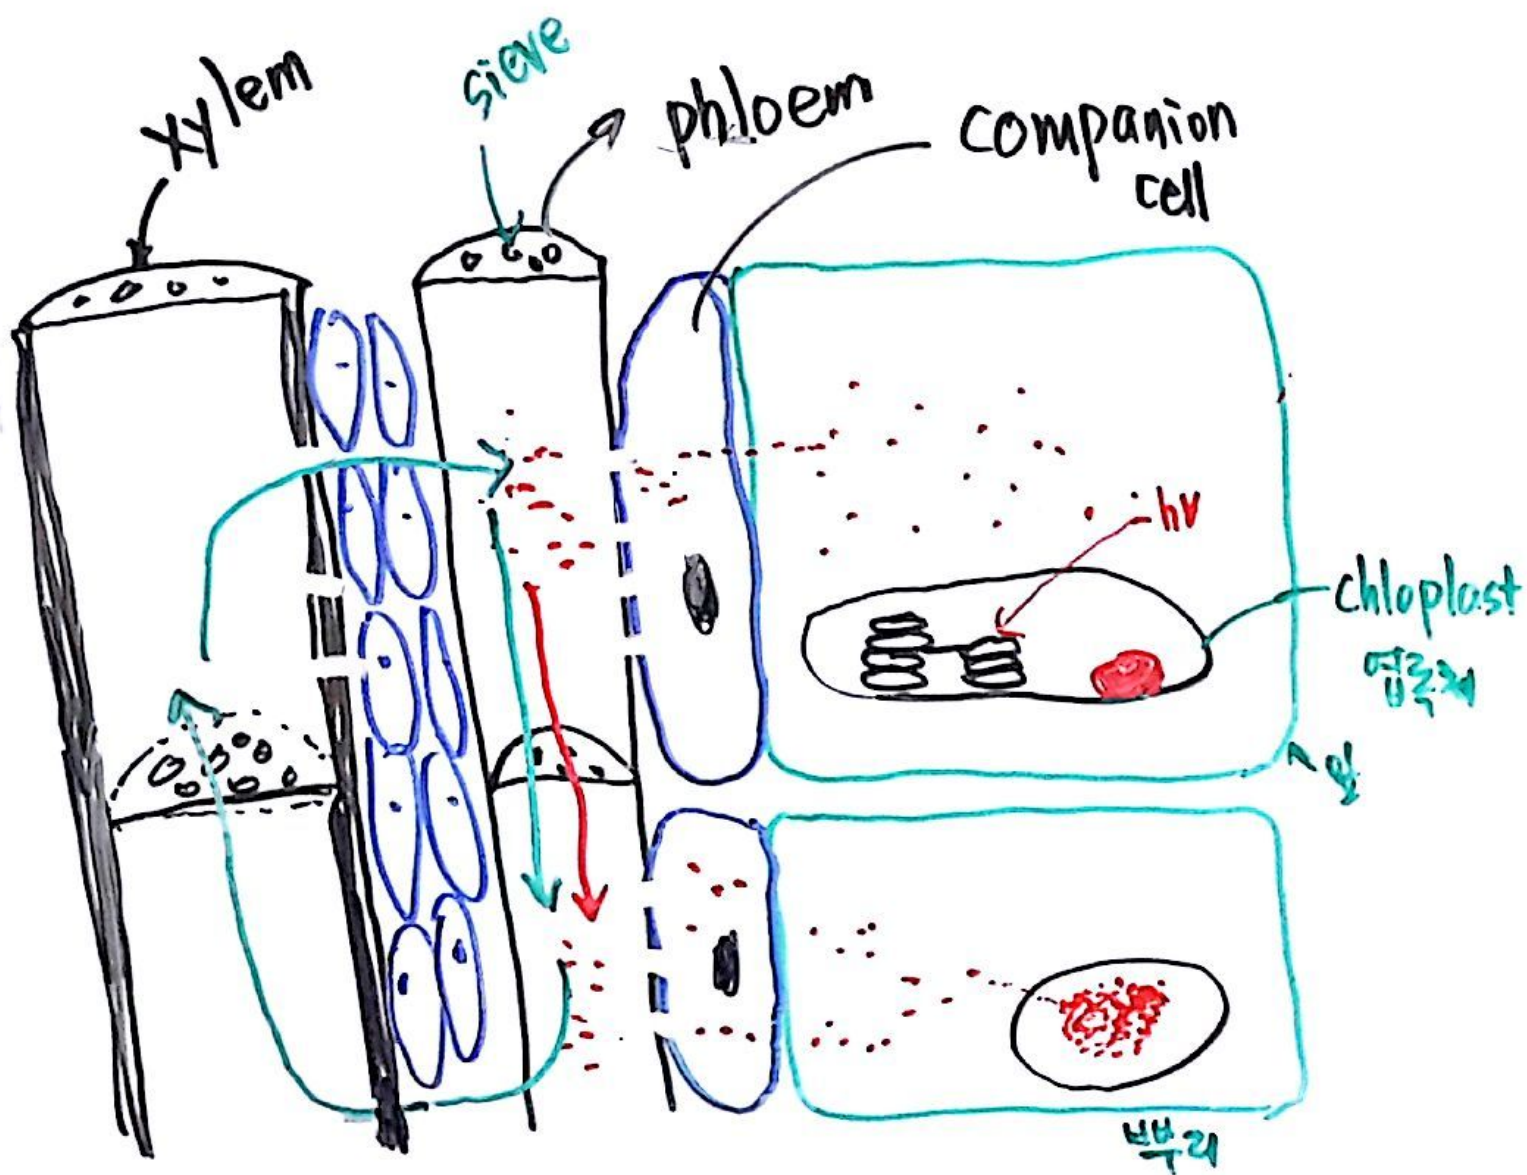 xylem
sieve
phloem
companion
cell
hν
chloplast
엽록체
잎
뿌리